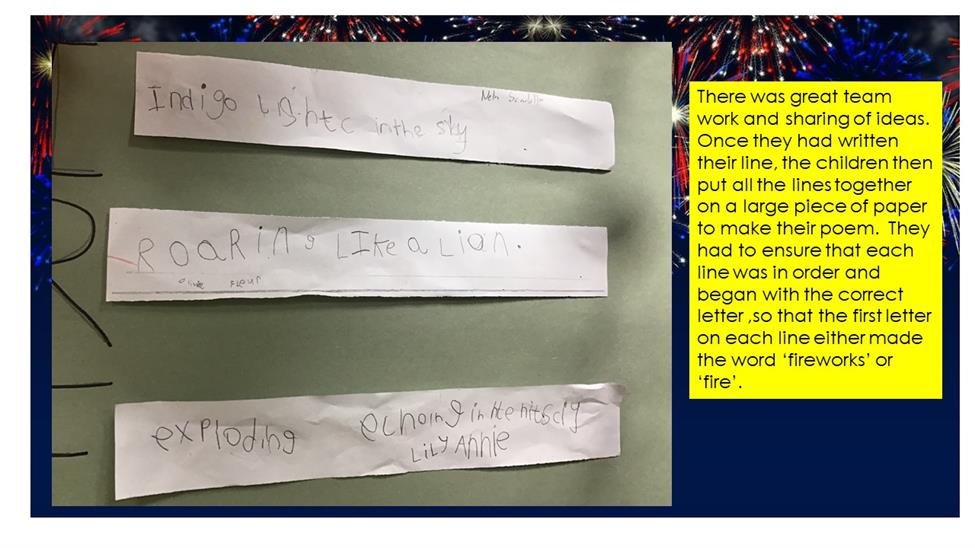 Indigo lightc in the sky
ROaRing LIke a Lian.
exploding echoing in the nitscly
LiLY Annie
There was great team
work and sharing of ideas.
Once they had written
their line, the children then
put all the lines together
on a large piece of paper
to make their poem. They
had to ensure that each
line was in order and
began with the correct
letter ,so that the first letter
on each line either made
the word ‘fireworks’ or
‘fire’.